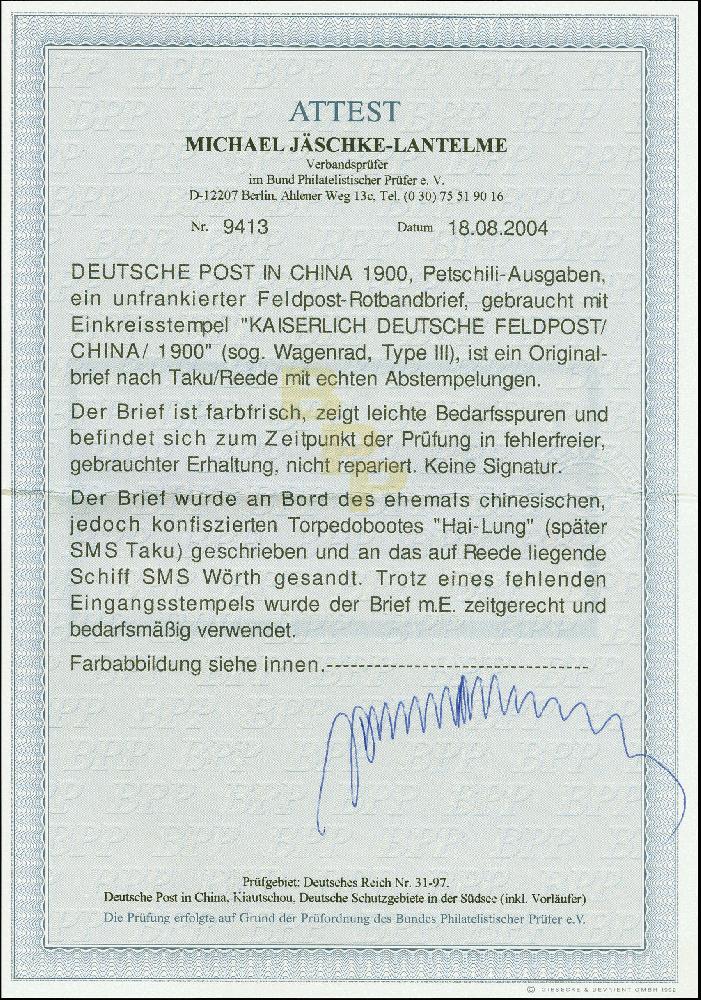 ATTEST
MICHAEL JÄSCHKE-LANTELME
Verbandsprüfer
im Bund Philatelistischer Prüfer e. V.
D-12207 Berlin, Ahlener Weg 13c, Tel. (0 30) 75 51 90 16
Nr. 9413 Datum 18.08.2004
DEUTSCHE POST IN CHINA 1900, Petschili-Ausgaben,
ein unfrankierter Feldpost-Rotbandbrief, gebraucht mit
Einkreisstempel "KAISERLICH DEUTSCHE FELDPOST/
CHINA/ 1900" (sog. Wagenrad, Type III), ist ein Original-
brief nach Taku/Reede mit echten Abstempelungen.
Der Brief ist farbfrisch, zeigt leichte Bedarfsspuren und
befindet sich zum Zeitpunkt der Prüfung in fehlerfreier,
gebrauchter Erhaltung, nicht repariert. Keine Signatur.
Der Brief wurde an Bord des ehemals chinesischen,
jedoch konfiszierten Torpedobootes "Hai-Lung" (später
SMS Taku) geschrieben und an das auf Reede liegende
Schiff SMS Wörth gesandt. Trotz eines fehlenden
Eingangsstempels wurde der Brief m.E. zeitgerecht und
bedarfsmäßig verwendet.
Farbabbildung siehe innen.---------------------------------
Prüfgebiet: Deutsches Reich Nr. 31-97.
Deutsche Post in China, Kiautschou, Deutsche Schutzgebiete in der Südsee (inkl. Vorläufer)
Die Prüfung erfolgte auf Grund der Prüfordnung des Bundes Philatelistischer Prüfer e.V.
© GIESECKE & DEVRIENT GMBH 1992